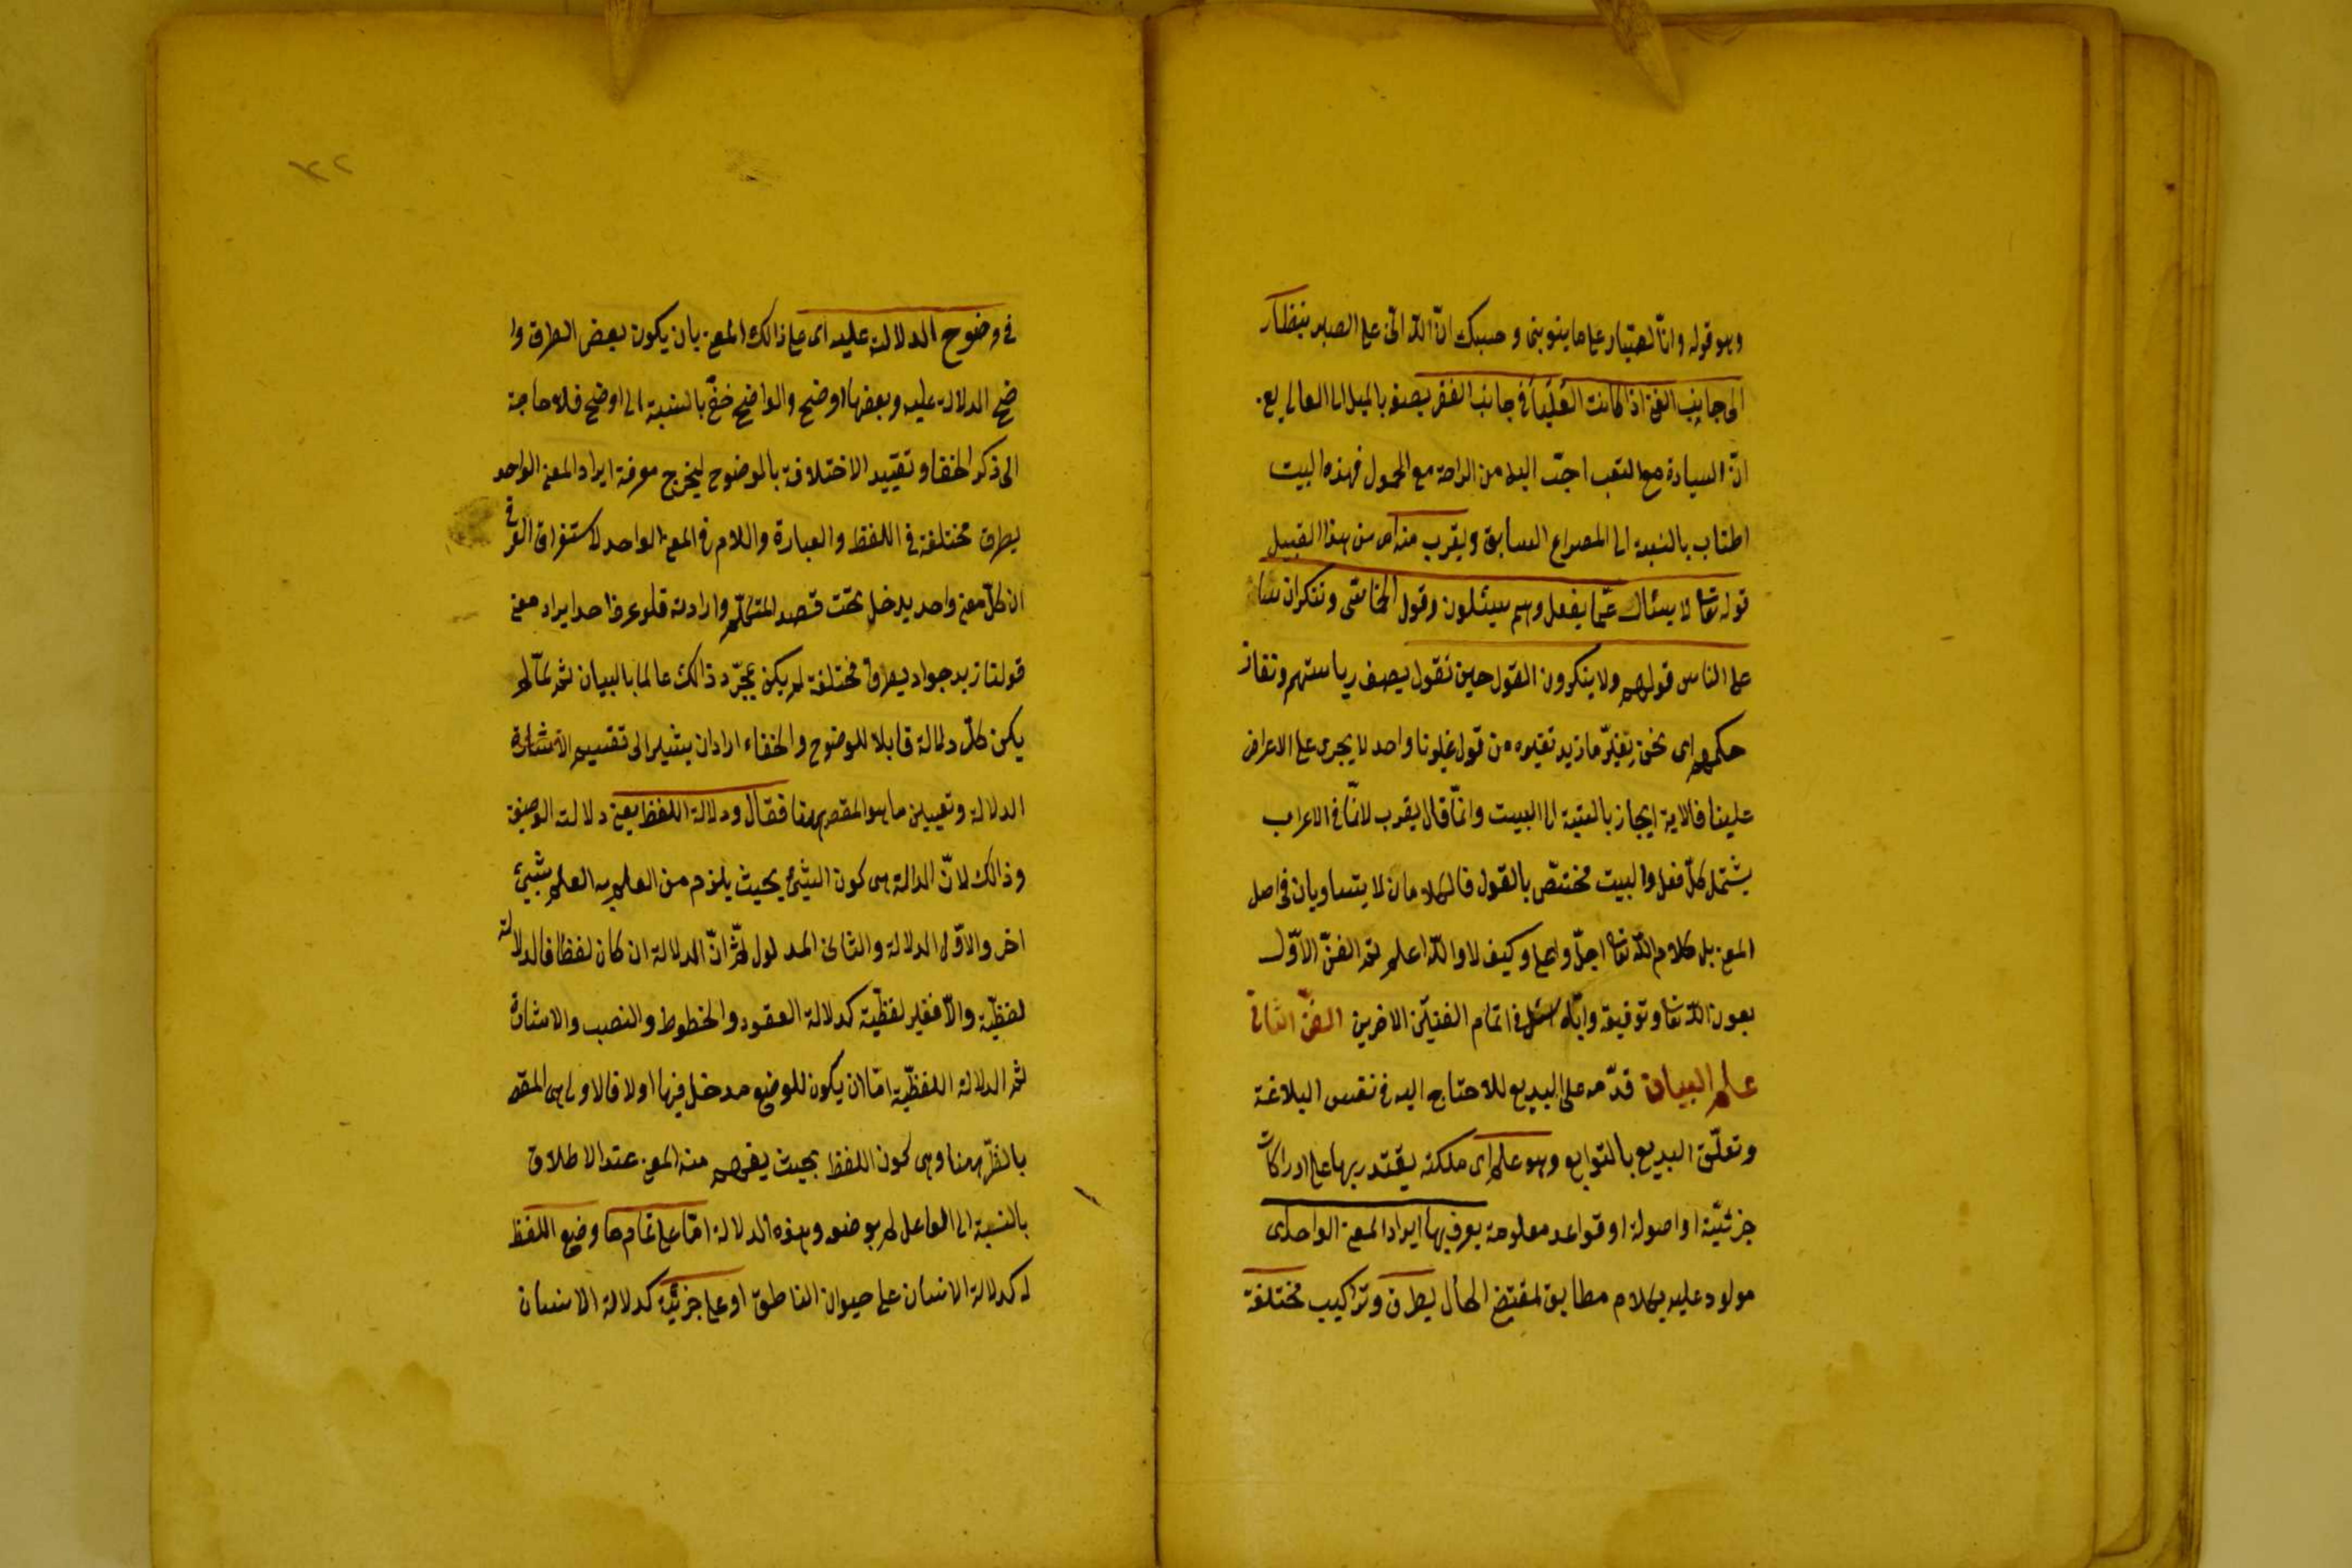 وهو قوله وانّا لصبّار على ما ينوبنى وحسبك انّ اللّه اثنى على الصبر بنظّار
الى جانب الغنى اذا كانت العُلْيَاُ فى جانب الفقر يصفه بالميل الى المعالى يع
انّ السيادة مع التعب احبّ اليه من الراحة مع الخمول فهذه البيت
اطناب بالنسبة الى المصراع السابق ويقرب منه اى من هذا القبيل
قوله تعا لا يسئال عمّا يفعل وهم يسئلون وقول الحماسى وننكر ان شئنا
على الناس قولهم ولا ينكرون القول حين نقول يصف رياستهم ونفاذ
حكمهم اى نحن نغيّر ما نريد تغيره من قول غيرنا واحد لا يجرى على الاعراض
علينا فالاية ايجاز بالنسبة الى البيت وانّما قال يقرب لانّ ما فى الاعراب
يشتمل كلّ فعل والبيت مختصّ بالقول فالكلامان لا يتساويان فى اصل
المعنى بل كلام اللّه تعا اجلّ واعلى وكيف لا واللّه اعلم تمّ الفنّ الاوّل
بعون اللّه تعا وتوفيقه وايّاه اسئل فى اتمام الفنيّن الاخرين الفنّ الثانى
علم البيان قدّمه على البديع للاحتاج اليه فى نفس البلاغة
وتعلّق البديع بالتوابع وهو علم اى ملكة يقتدر بها على ادراكات
جزئيّة او اصولة او قواعد معلومة يعرف بها ايراد المعنى الواحد اى
مولود عليه بكلام مطابق لمقتضى الحال بطرق وتراكيب مختلفة
فى وضوح الدلالة عليه اى على ذالك المعنى بان يكون بعض الطرق وا
ضح الدلالة عليه وبعضها اوضح والواضح خفىّ بالنسبة الى اوضح فلا حاجة
الى ذكر الخفا وتقييد الاختلافة بالوضوح ليخرج معرفة ايراد المعنى الواحد
بطرق مختلفة فى اللفظ والعبارة واللام فى المعنى الواحد لاستغراق العرفى
ان كلّ معنى واحد يدخل تحت قصد المتكلّم وارادته فلو عرف احد ايراد معنى
قولنا زيد جواد بطرق مختلفة لم يكن بمجرّد ذالك عالما بالبيان ثم لمّا لم
يكن كلّ دلالة قابلا للوضوح والخفاء اراد ان يشير الى تقسيم الاشارة
الدلالة وتعيين ما هو المقصد هنا فقال ودلالة اللفظ يعنى دلالته الوضعيّة
وذالك لانّ الدالة هى كون الشئ بحيث يلزم من العلم به العلم بشيئ
اخر والاوّل الدلالة والثانى المدلول ثمّ انّ الدلالة ان كان لفظا فالدلالة
لفظيّة والّا فغير لفظيّة كدلالة العقود والخطوط والنصب والاشارة
ثم الدلالة اللفظيّة امّا ان يكون للوضع مدخل فيها اولا فالاولى هى المقصد
بالنظّر هنا وهى كون اللفظ بحيث يفهم منه المعنى عند الاطلاق
بالنسبة الى العا على لم بوضعه وهذه الدلالة امّا على تمام ما وضع اللفظ
له كدلالة الانسان على حيوان الناطق او على جزئيّة كدلالة الانسان